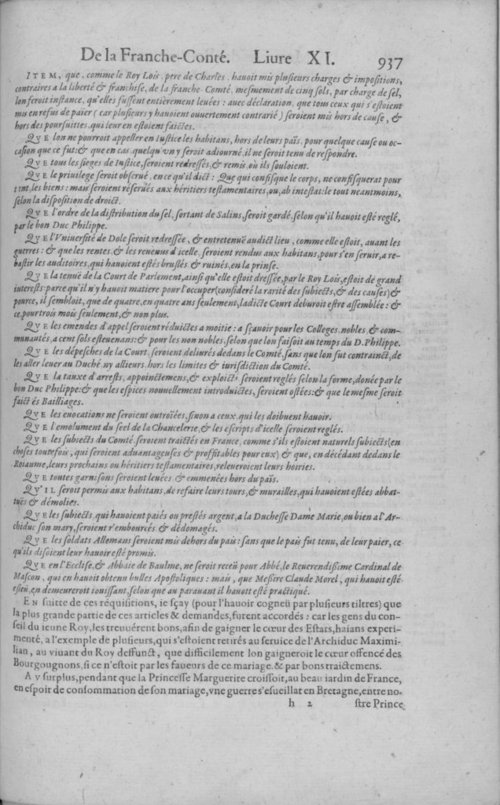 De la Franche-Conté. Liure XI. 937
ITEM, que, comme le Roy Lois, pere de Charles, hauoit mis plusieurs charges & impositions,
contraires a la liberté & franchise, de la franche Comté, mesmement de cinq sols, par charge de sel,
lon feroit instance, qu'elles fussent entièrement leuées: auec déclaration, que tous ceux qui s'estoient
mis en refus de paier (car plusieurs y hauoient ouuertement contrarié) seroient mis hors de cause, &
hors des poursuittes, qui leur en estoient faictes.
QVE lon ne pourroit appeller en Iustice les habitans, hors de leurs païs, pour quelque cause ou oc-
casion que ce fut: & que en cas quelqu'vn y seroit adiourné, il ne seroit tenu de respondre.
QVE tous les sieges de Iustice, seroient redressés, & remis, où ils souloient.
QVE le priuilege seroit obserué, en ce qu'il dict: Que qui confisque le corps, ne confisquerat pour
tant, les biens: mais seroient réserués aux héritiers testamentaires, ou, ab intestat: le tout neantmoins,
selon la disposition de droict.
QVE l'ordre de la distribution du sel, sortant de Salins, seroit gardé, selon qu'il hauoit esté reglé,
par le bon Duc Philippe.
QVE l'Vniuersité de Dole seroit redressée, & entretenuë audict lieu, comme elle estoit, auant les
guerres: & que les rentes & les reuenus d'icelle, seroient rendus aux habitans, pour s'en seruir, a re-
bastir les auditoires, qui hauoient estés bruslés & ruinés, en la prinse.
QVE la tenuë de la Court de Parlement, ainsi qu'elle estoit dressée, par le Roy Lois, estoit de grand
interests parce qu'il n'y hauoit matiere pour l'occuper (consideré la rarité des subiects, & des causes) &
pource, il sembloit, que de quatre, en quatre ans seulement, ladicte Court deburoit estre assemblée: &
ce, pour trois mois seulement, & non plus.
QVE les emendes d'appel seroient réduictes a moitie: a sçauoir pour les Colleges nobles & com-
munautés, a cent sols esteuenans: & pour les non nobles, selon que lon faisoit au temps du D. Philippe.
QVE les dépesches de la Court seroient deliurés dedans le Comté, sans que lon fut contrainct, de
les aller leuer au Duché ny allieurs, hors les limites & iurisdiction du Comté.
QVE la tauxe d'arrests, appoinctemens, & exploicts seroient reglés selon la forme, donée par le
bon Duc Philippe: & que les espices nouuellement introduictes, seroient ostées: & que le mesme seroit
faict és Bailliages.
QVE les euocations ne seroient outroiées, sinon a ceux qui les doibuent hauoir.
QVE l'emolument du seel de la Chancelerie, & les escripts d'icelle seroient reglés.
QVE les subiects du Comté seroient traictés en France, comme s'ils estoient naturels subiects (en
choses toutefois, qui seroient aduantageuses & proffitables pour eux) & que, en décédant dedans le
Roiaume, leurs prochains ou héritiers testamentaires, releueroient leurs hoiries.
QVE toutes garnisons seroient leuées & emmenées hors du païs.
QV'IL seroit permis aux habitans, de refaire leurs tours, & murailles, qui hauoient estées abbat-
tuës & démolies.
QVE les subiects, qui hauoient paiés ou prestés argent, a la Duchesse Dame Marie, ou bien a l'Ar-
chiduc son mary, seroient r'emboursés & dédomagés.
QVE les soldats Allemans seroient mis dehors du païs: sans que le païs fut tenu, de leur paier, ce
qu'ils disoient leur hauoir esté promis.
QVE en l'Ecclise, & Abbaie de Baulme, ne seroit receü pour Abbé, le Reuerendissime Cardinal de
Mascon, qui en hauoit obtenu bulles Apostoliques: mais, que Messire Claude Morel, qui hauoit esté
esleü, en demeureroit iouissant, selon que au parauant il hauoit esté practiqué.
EN suitte de ces réquisitions, ie sçay (pour l'hauoir cogneü par plusieurs tiltres) que
la plus grande partie de ces articles & demandes, furent accordés: car les gens du con-
seil du ieune Roy, les treuuérent bons, afin de gaigner le cœur des Estats, haians experi-
menté, a l'exemple de plusieurs, qui s'estoient retirés au seruice de l'Archiduc Maximi-
lian, au viuant du Roy deffunct, que difficilement lon gaigneroit le cœur offencé des
Bourgougnons, si ce n'estoit par les faueurs de ce mariage, & par bons traictemens.
AV surplus, pendant que la Princesse Marguerite croissoit, au beau iardin de France,
en espoir de consommation de son mariage, vne guerre s'esueillat en Bretagne, entre no-
h 2 stre Prince